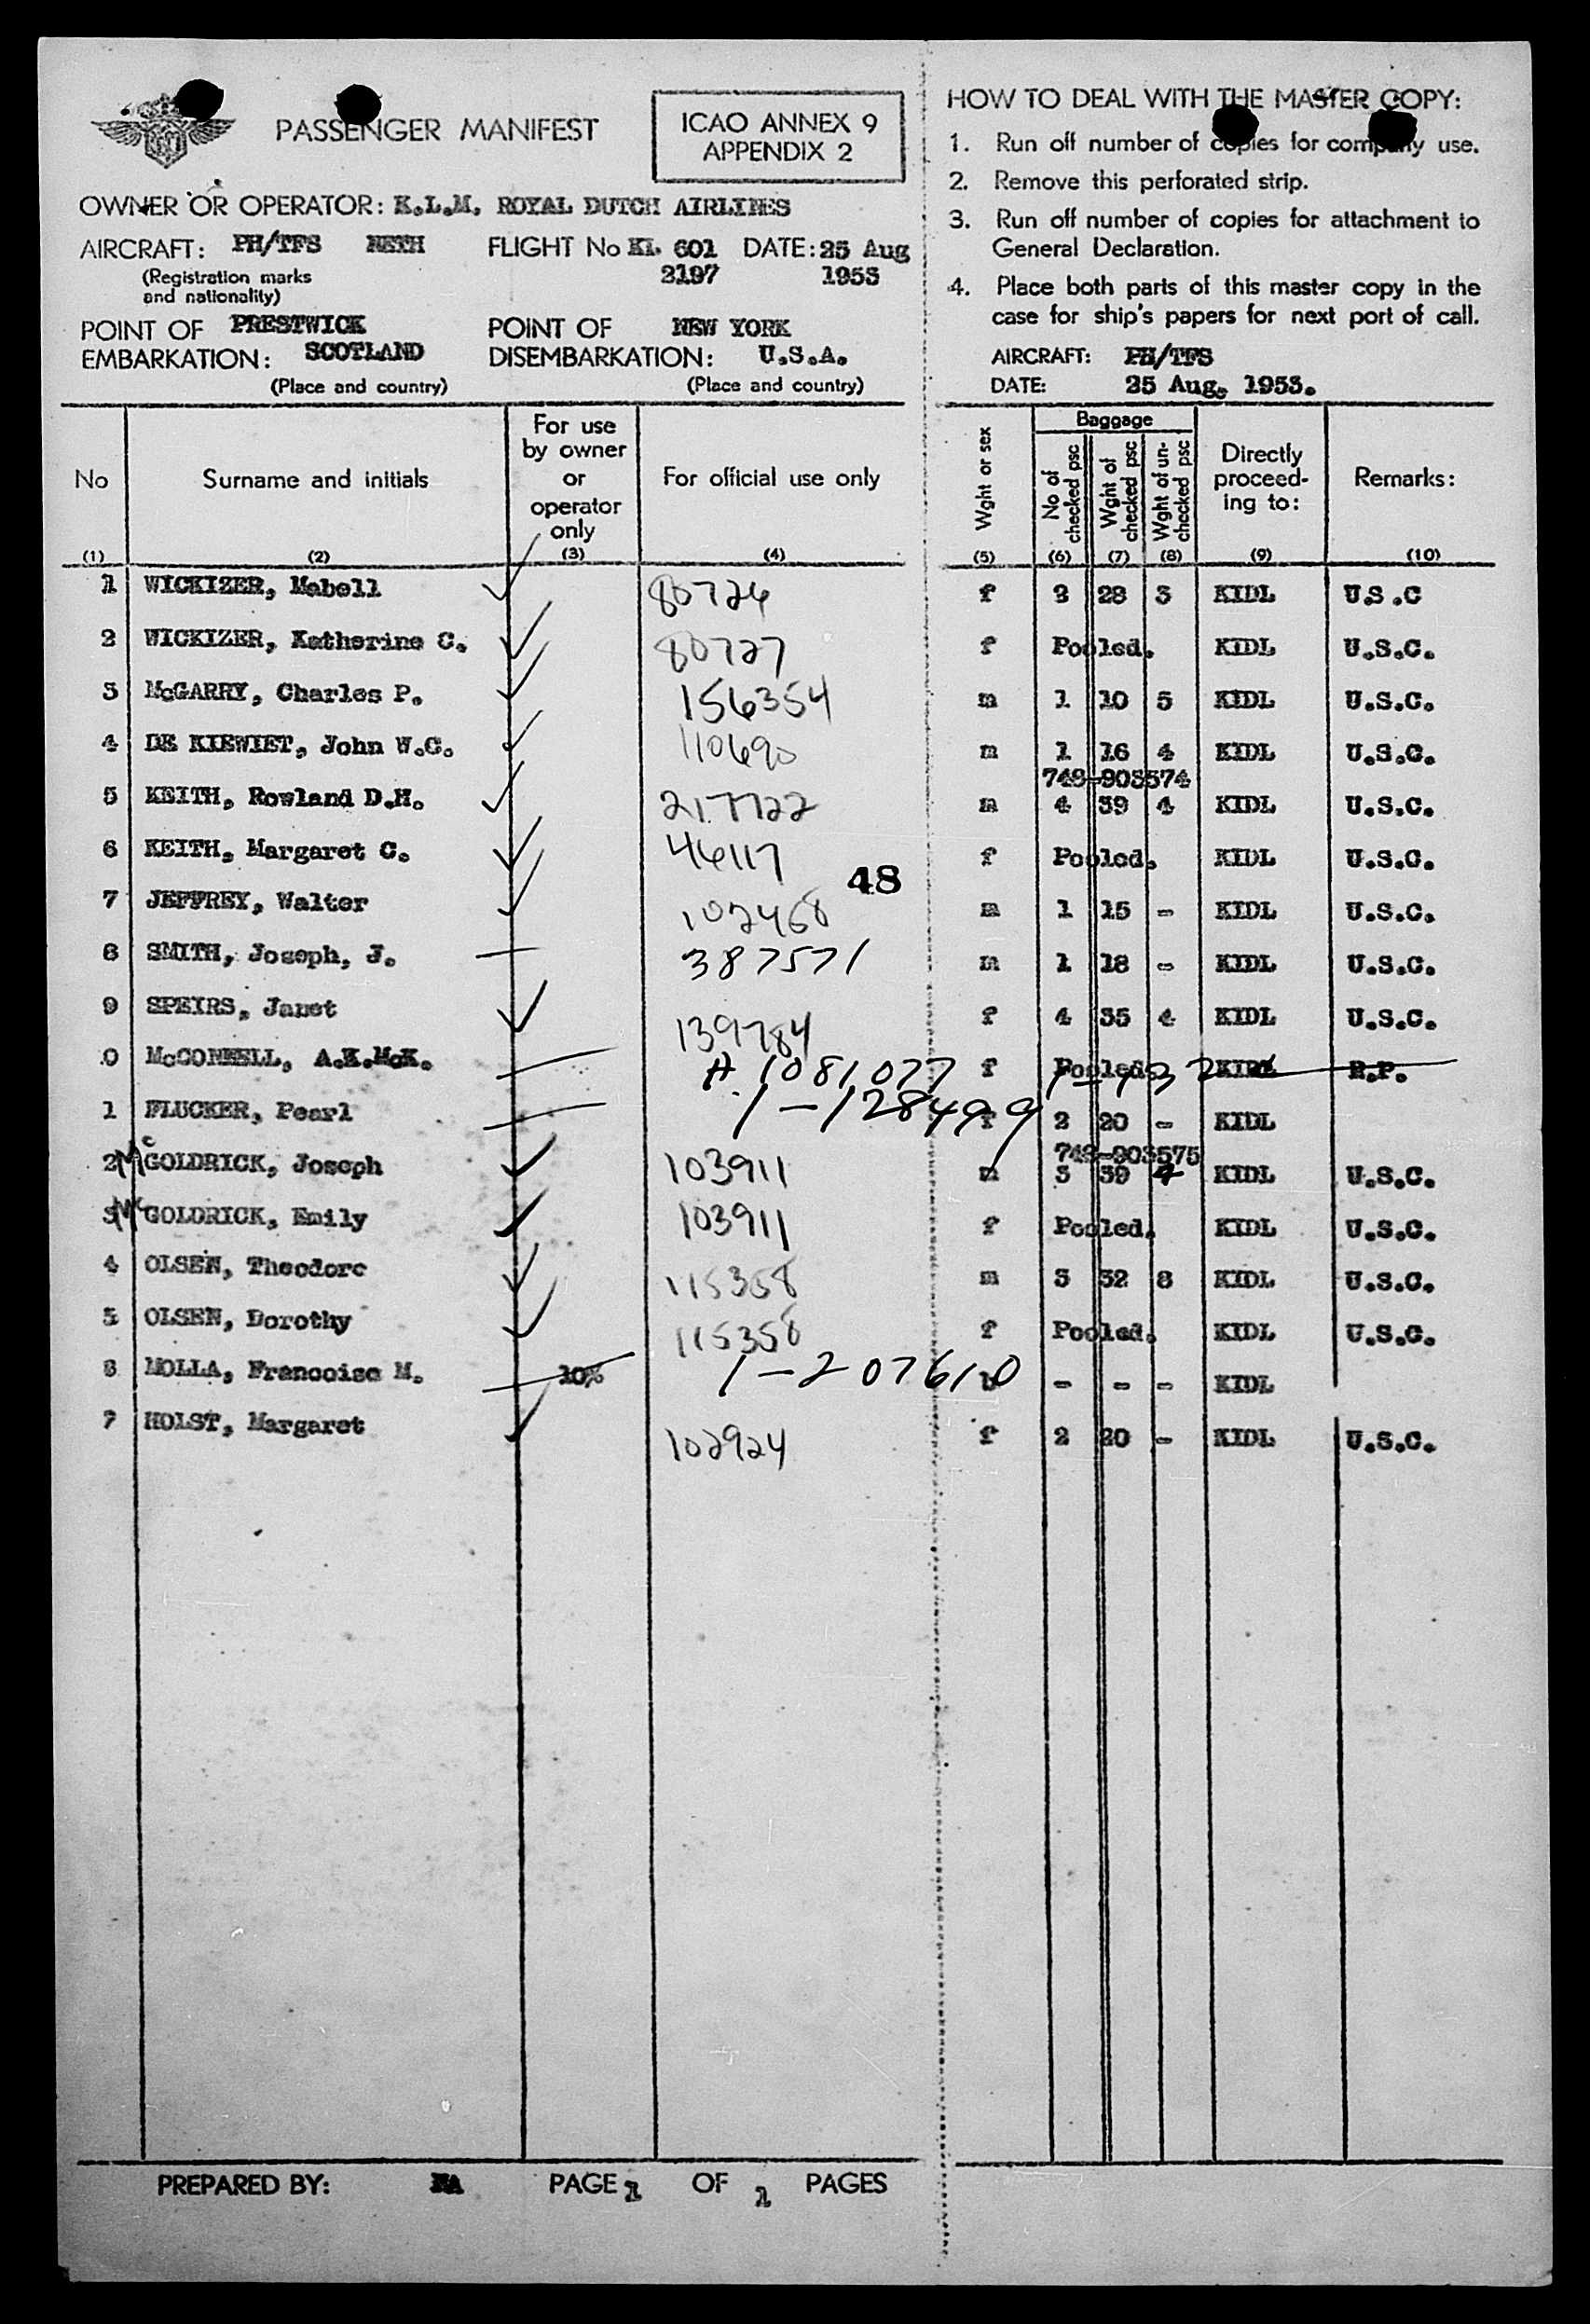 PASSENGER MANIFEST
ICAO ANNEX 9
APPENDIX 2
OWNER OR OPERATOR: K.L.M. ROYAL DUTCH AIRLINES
AIRCRAFT: PH/TFS NETH FLIGHT No KL 601 DATE: 25 Aug
(Registration marks 2197 1953
and nationality)
POINT OF PRESTWICK POINT OF NEW YORK
EMBARKATION: SCOTLAND DISEMBARKATION: U.S.A.
(Place and country) (Place and country)
HOW TO DEAL WITH THE MASTER COPY:
1. Run off number of copies for company use.
2. Remove this perforated strip.
3. Run off number of copies for attachment to
General Declaration.
4. Place both parts of this master copy in the
case for ship's papers for next port of call.
AIRCRAFT: PH/TFS
DATE: 25 Aug. 1953.
No
(1)
Surname and initials
(2)
For use
by owner
or
operator
only
(3)
For official use only
(4)
Wght or sex
(5)
Baggage
No of
checked psc
(6)
Wght of
checked psc
(7)
Wght of un-
checked psc
(8)
Directly
proceed-
ing to:
(9)
Remarks:
(10)
1 WICKIZER, Mabell 80726 f 2 28 3 KIDL U.S.C
2 WICKIZER, Katherine C. 80727 f Pooled. KIDL U.S.C.
3 McGARRY, Charles P. 156354 m 1 10 5 KIDL U.S.C.
4 DE KIEWIET, John W.C. 110690 m 1 16 4 KIDL U.S.C.
749-903574
5 KEITH, Rowland D.H. 217722 m 4 39 4 KIDL U.S.C.
6 KEITH, Margaret C. 46117 f Pooled. KIDL U.S.C.
48
7 JEFFREY, Walter 102468 m 1 15 - KIDL U.S.C.
8 SMITH, Joseph, J. 387571 m 1 18 - KIDL U.S.C.
9 SPEIRS, Janet 139784 f 4 35 4 KIDL U.S.C.
0 McCONNELL, A.K.McK. A 1081077 f Pooled. KIDL R.P.
1 FLUCKER, Pearl 1-128499 f 2 20 - KIDL
749-903575
2 McGOLDRICK, Joseph 103911 m 3 39 4 KIDL U.S.C.
3 McGOLDRICK, Emily 103911 f Pooled. KIDL U.S.C.
4 OLSEN, Theodore 115358 m 3 32 8 KIDL U.S.C.
5 OLSEN, Dorothy 115358 f Pooled. KIDL U.S.C.
6 MOLLA, Francoise M. 10% 1-207610 - - - KIDL
7 HOLST, Margaret 102924 f 2 20 - KIDL U.S.C.
PREPARED BY: NA PAGE 1 OF 1 PAGES